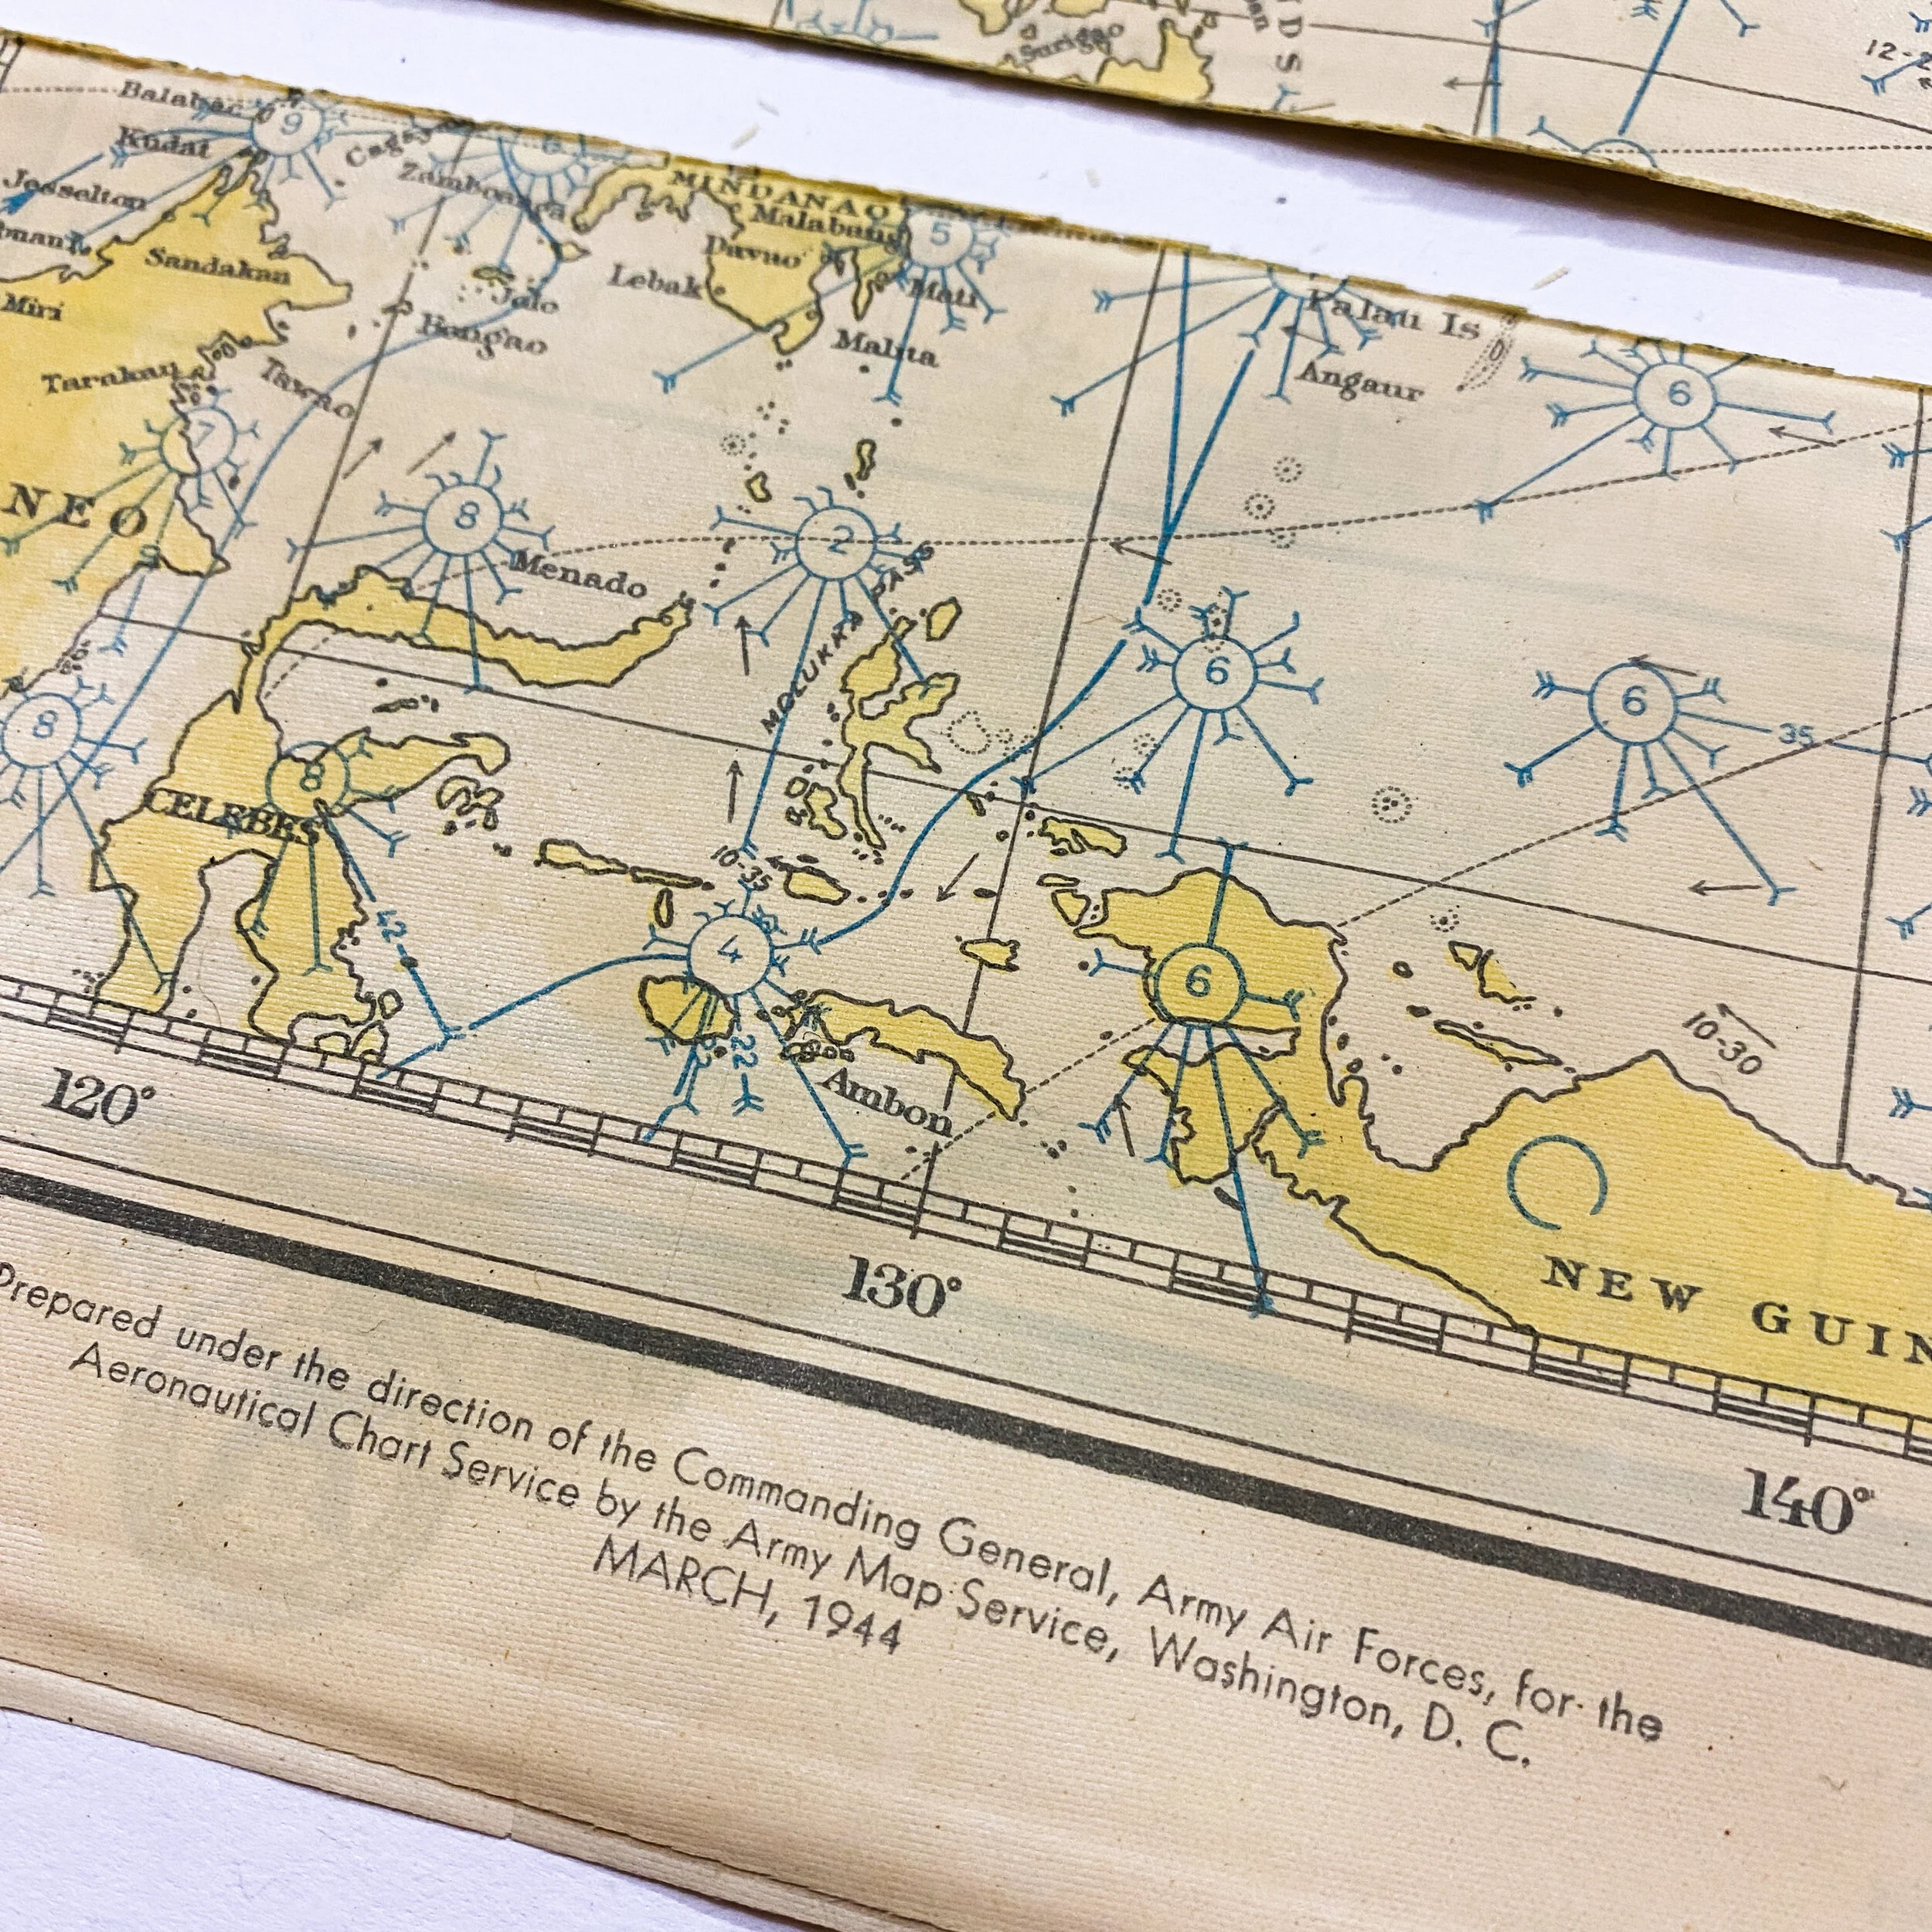 Surigao
D
S
12-2
Balabac
9
Kudat
Cagay
6
Zamboanga
MINDANAO
Jesselton
Malabang
5
Davao
Sandakan
Lebak
Mati
Miri
Jolo
Palau Is
Bongao
Malita
Angaur
6
Tarakan
Tawao
7
NEO
8
2
Menado
MOLUKKA PASS
6
6
35
8
8
CELEBES
10-35
42
4
6
22
10-30
Ambon
120°
130°
140°
NEW GUIN
Prepared under the direction of the Commanding General, Army Air Forces, for the
Aeronautical Chart Service by the Army Map Service, Washington, D. C.
MARCH, 1944